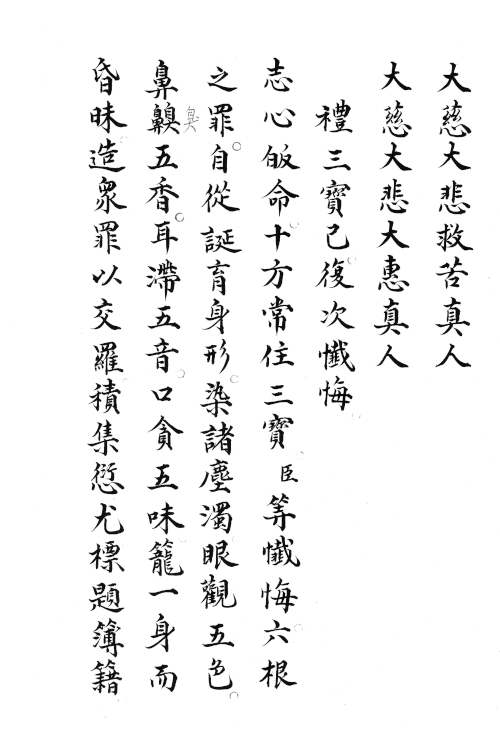 大慈大悲救苦真人
大慈大悲大惠真人
禮三寶已復次懺悔
志心皈命十方常住三寶臣等懺悔六根
之罪自從誕育身形染諸塵濁眼觀五色
鼻齅五香耳滯五音口貪五味籠一身而
臭
昏昧造眾罪以交羅積集愆尤標題簿籍